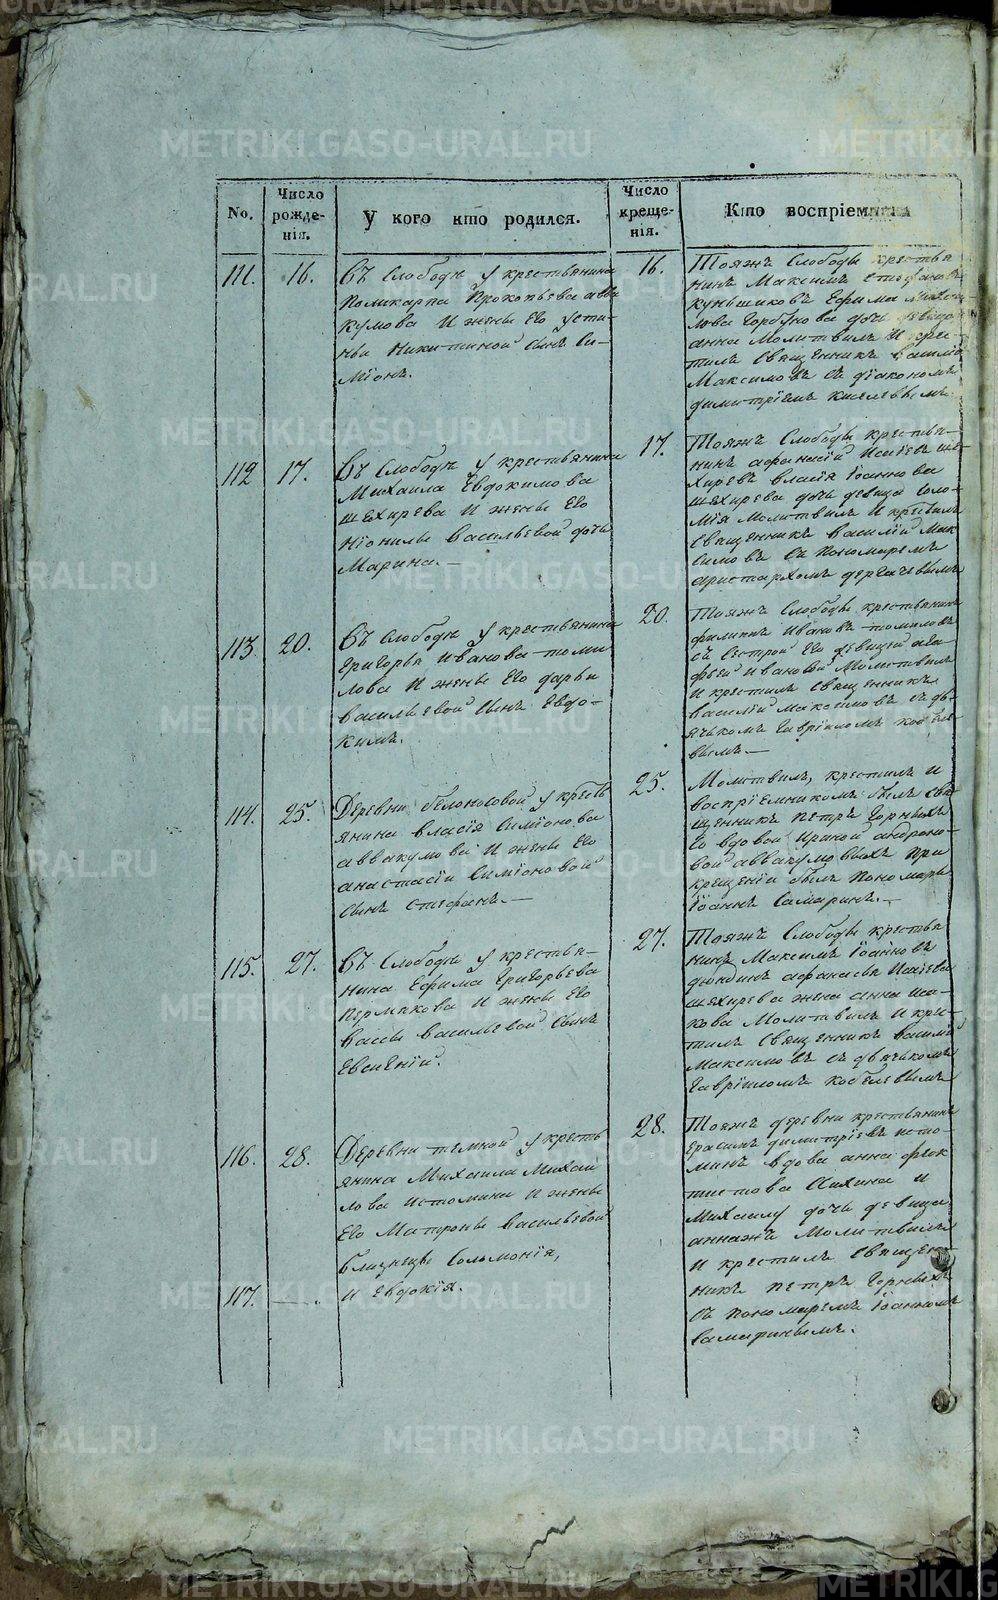 No.
Число рожде-
нія.
У кого кто родился.
Число креще-
нія.
Кто воспріемники
111. 16.
Въ Слободѣ у крестьянина
Поликарпа Прокопьева авва
кумова И жены Его Усти-
ньи Никитиной Сынъ Си-
міонъ.
16.
Тояжъ Слободы крестья
нинъ Максимъ Стефановъ
Ефима
лова Горбунова дочь девица
анна Молитвилъ И кре-
тилъ Священникъ Василій
Максимовъ Съ діакономъ
димитріемъ Киселевымъ.
112 17.
Въ Слободѣ у крестьянина
Михаила Евдокимова
шехирева И жены Его
Ніонилы Васильевой дочь
Марина.—
17.
Тояжъ Слободы крестья-
нинъ афанасій Исаіевъ ше-
хиревъ власія Іоаннова
шехирева дочь девица Соло-
мія Молитвилъ И крестилъ
Священникъ василій Мак
симовъ Съ Пономаремъ
аристархомъ дергачевымъ
113. 20.
Въ Слободѣ у крестьянина
Григорья Иванова томи
лова И жены Его дарьи
васильевой Сынъ Евдо-
кимъ.
20.
Тояжъ Слободы крестьянинъ
филиппъ Ивановъ томиловъ
съ Сестрой Его девицей ага
фьей Ивановой Молитвилъ
И крестилъ Священникъ
василій Максимовъ съ дь-
ячькомъ Гавріиломъ кобеле-
вымъ.—
114. 25.
Деревни белоносовой у кресть
янина власія Симіонова
аввакумова И жены Его
анастасіи Симіоновой
Сынъ Стефанъ.—
25.
Молитвилъ, крестилъ и
воспріемникомъ былъ свя
щенникъ Петръ Горныхъ
Со вдовой Ириной андроно-
вой аввакумовыхъ При
крещеніи былъ Пономарь
Іоаннъ Самаринъ.—
115. 27.
Въ Слободѣ у крестья-
нина Ефима Григорьева
Пермякова И жены Его
Вассы Васильевой Сынъ
Евсигній.
27.
Тояжъ Слободы крестья
нинъ Максимъ Іоанновъ
афанасья Исаіева
шехирева жена анна Иса-
кова Молитвилъ И кре-
тилъ Священникъ василій
Максимовъ съ дьячькомъ
Гавріиломъ кобелевымъ
116. 28.
Деревни темной у кресть
янина Михаила Михаи
лова Истомина И жены
Его Матроны Васильевой
близнецы Соломонія,
28.
Тояжъ деревни крестьянинъ
Ерасимъ димитріевъ исто-
минъ вдова анна фек
тистова И
Михаилу дочь девица
аннажъ Молитвилъ
И крестилъ Священ-
никъ Петръ Горныхъ
Съ пономаремъ Іоанномъ
Самаринымъ.
117. —.
И Евдокія.
METRIKI.GASO-URAL.RU